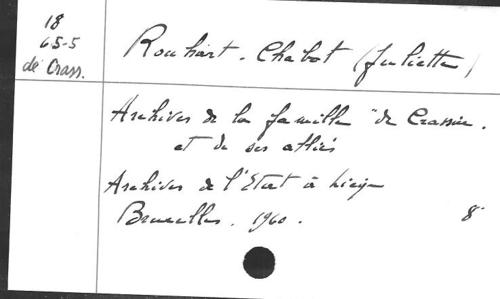 18
65-5
de Crass.
Rouhart-Chabot (Juliette)
Archives de la famille "de Crassier.
et de ses alliés
Archives de l'Etat à Liège
Bruxelles. 1960.
8°